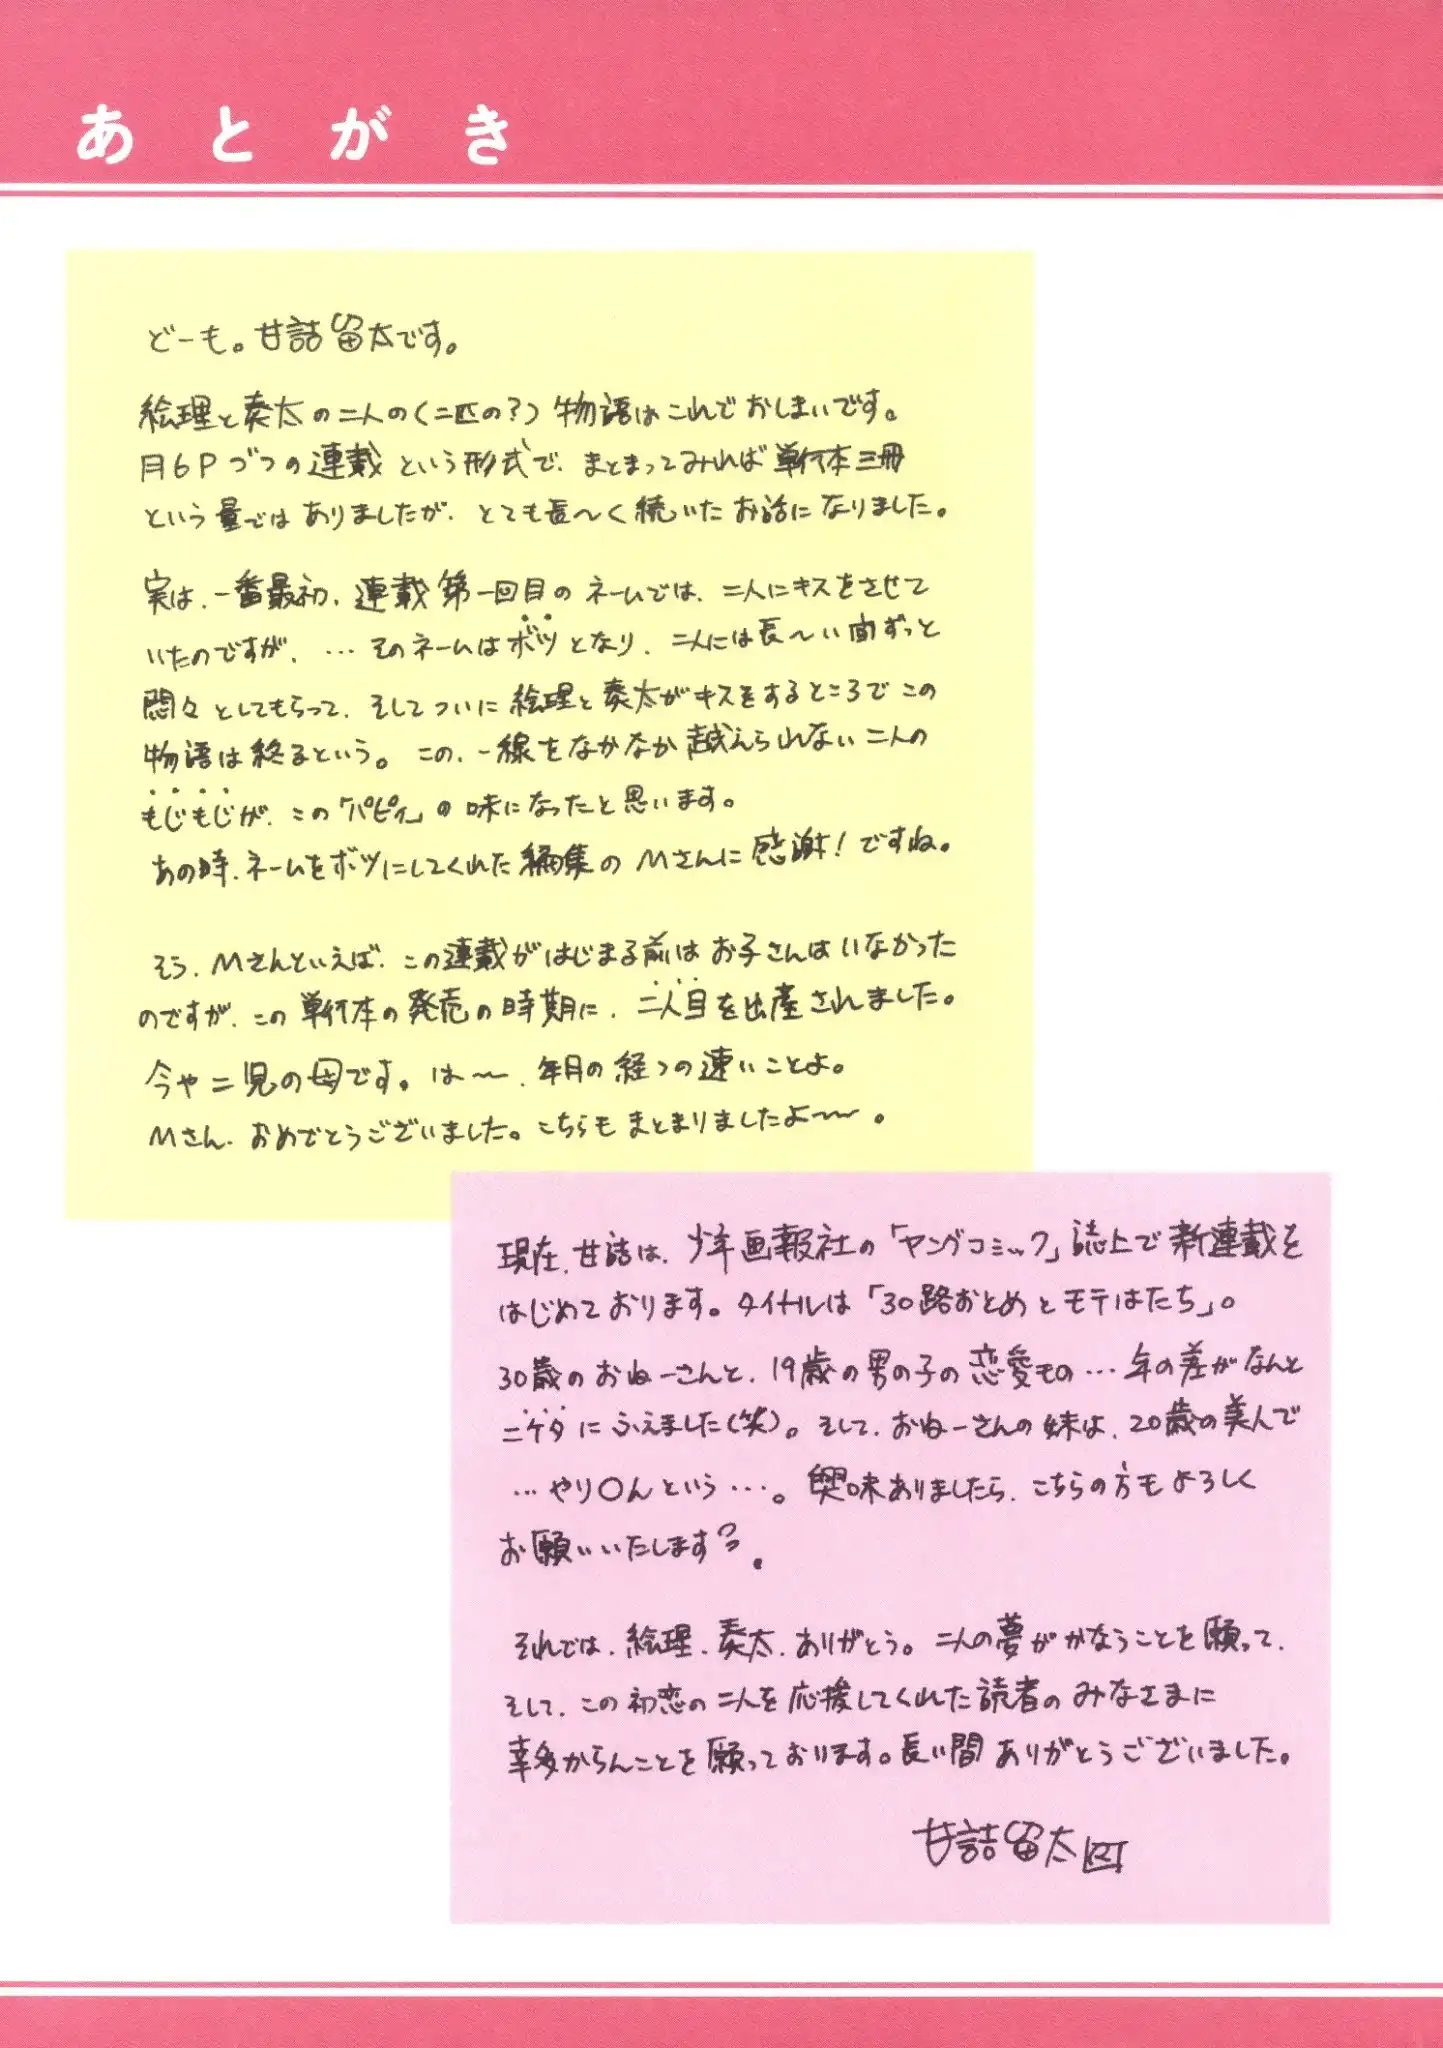 あとがき
どーも。甘詰留太です。
絵理と奏太の二人の(二匹の?)物語はこれでおしまいです。
月6Pづつの連載という形式で、まとまってみれば単行本三冊
という量ではありましたが、とても長〜く続いたお話になりました。
実は、一番最初、連載第一回目のネームでは、二人にキスをさせて
いたのですが、…そのネームはボツとなり、二人には長〜い間ずっと
悶々としてもらって、そしてついに絵理と奏太がキスをするところでこの
物語は終るという。この、一線をなかなか越えられない二人の
もじもじが、この「パピィ」の味になったと思います。
あの時、ネームをボツにしてくれた編集のMさんに感謝!ですね。
そう、Mさんといえば、この連載がはじまる前はお子さんはいなかった
のですが、この単行本の発売の時期に、二人目を出産されました。
今や二児の母です。は〜、年月の経つの速いことよ。
Mさん、おめでとうございました。こちらもまとまりましたよ〜〜。
現在、甘詰は、少年画報社の「ヤングコミック」誌上で新連載を
はじめております。タイトルは「30路おとめとモテはたち」。
30歳のおねーさんと、19歳の男の子の恋愛もの…年の差がなんと
ニケタにふえました(笑)。そして、おねーさんの妹は、20歳の美人で
…やり〇んという…。興味ありましたら、こちらの方もよろしく
お願いいたします。
それでは、絵理、奏太、ありがとう。二人の夢がかなうことを願って、
そして、この初恋の二人を応援してくれた読者のみなさまに
幸多からんことを願っております。長い間ありがとうございました。
甘詰留太